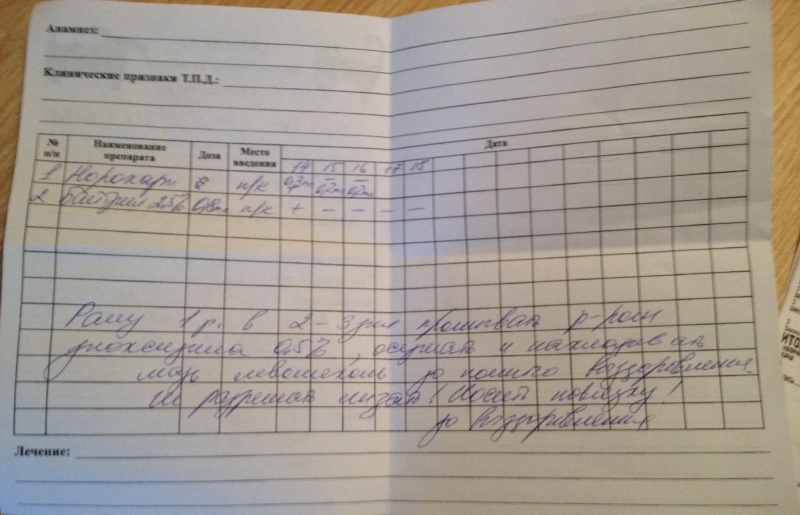 Анамнез:
Клинические признаки Т.П.Д.:
№ п/п Наименование препарата Доза Место введения Дата
14 15 16 17 18
1 Норокарп п/к 0,2мл 0,2мл 0,2мл
2 Байтрил 2,5% 0,8мл п/к + – – – –
Рану 1 р. в 2-3 дня промывать р-ром
диоксидина 0,5%, осушать и накладывать
мазь левомеколь до полного выздоровления.
Не разрешать лизать! Носить повязку!
до выздоровления
Лечение: